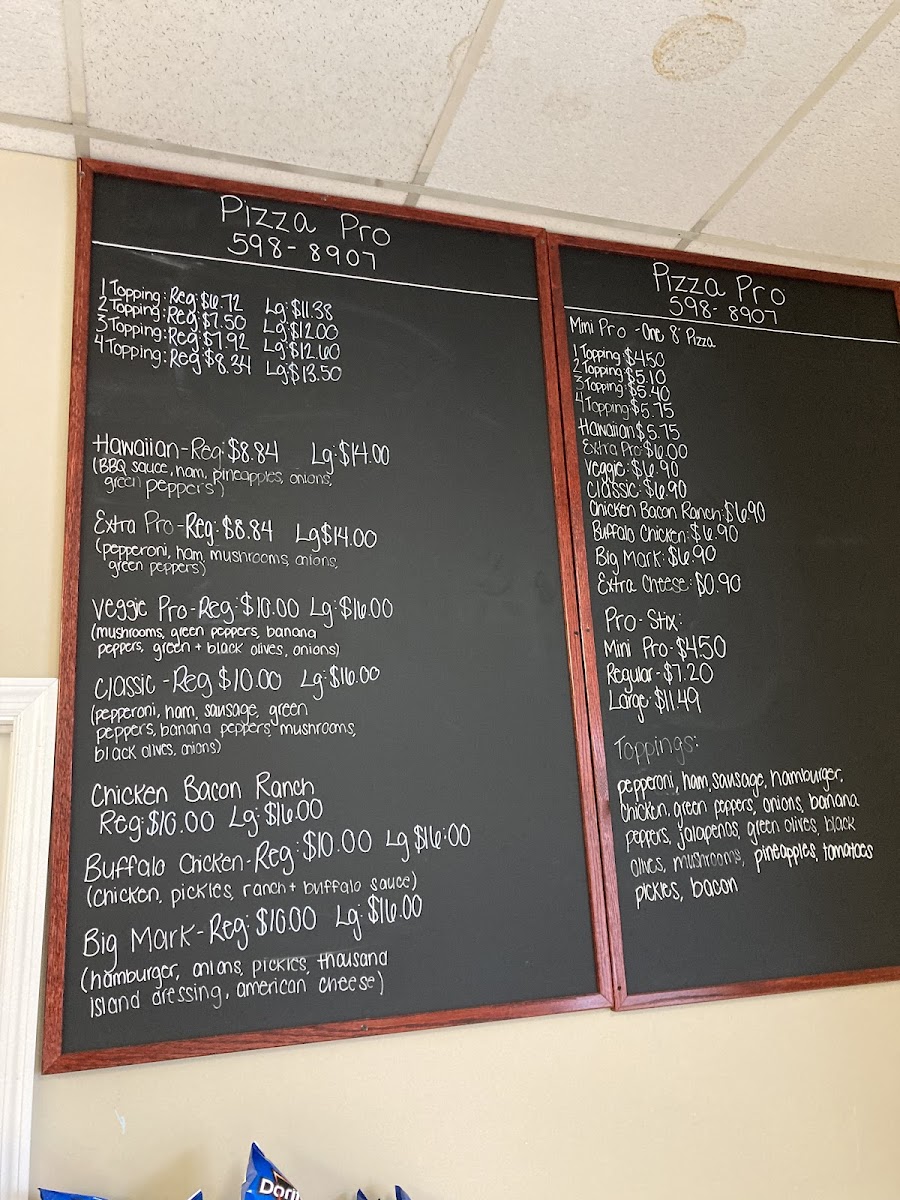 Pizza Pro
598-8907
1 Topping: Reg: $6.72 Lg: $11.38
2 Topping: Reg: $7.50 Lg: $12.00
3 Topping: Reg: $7.92 Lg: $12.60
4 Topping: Reg: $8.34 Lg: $13.50
Hawaiian-Reg: $8.84 Lg: $14.00
(BBQ sauce, ham, pineapples, onions,
green peppers)
Extra Pro-Reg: $8.84 Lg $14.00
(pepperoni, ham, mushrooms, onions,
green peppers)
Veggie Pro-Reg: $10.00 Lg: $16.00
(mushrooms, green peppers, banana
peppers, green + black olives, onions)
Classic -Reg $10.00 Lg: $16.00
(pepperoni, ham, sausage, green
peppers, banana peppers, mushrooms,
black olives, onions)
Chicken Bacon Ranch
Reg: $10.00 Lg: $16.00
Buffalo Chicken-Reg: $10.00 Lg $16.00
(chicken, pickles, ranch + buffalo sauce)
Big Mark- Reg: $10.00 Lg: $16.00
(hamburger, onions, pickles, thousand
island dressing, american cheese)
Pizza Pro
598-8907
Mini Pro - One 8" Pizza
1 Topping $4.50
2 Topping: $5.10
3 Topping: $5.40
4 Topping: $5.75
Hawaiian $5.75
Extra Pro: $6.00
Veggie: $6.90
Classic: $6.90
Chicken Bacon Ranch: $6.90
Buffalo Chicken: $6.90
Big Mark: $6.90
Extra Cheese: $0.90
Pro-Stix:
Mini Pro: $4.50
Regular- $7.20
Large: $11.49
Toppings:
pepperoni, ham, sausage, hamburger,
chicken, green peppers, onions, banana
peppers, jalapenos, green olives, black
olives, mushrooms, pineapples, tomatoes
pickles, bacon